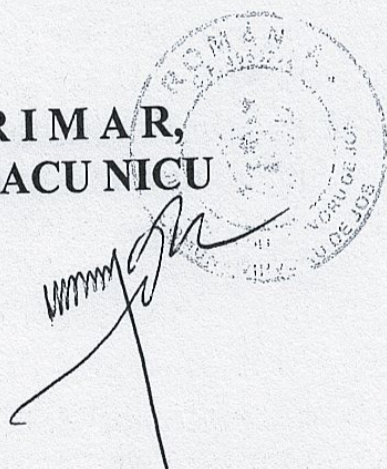 R I M A R,
ACU NICU
ROMÂNIA
VORU DE JOS
U DE JOS